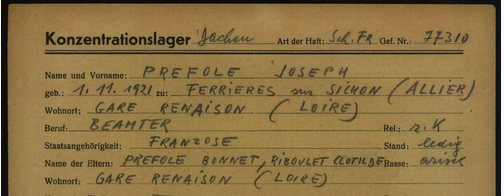 Konzentrationslager Dachau Art der Haft: Sch. FR Gef. Nr.: 77310
Name und Vorname: PREFOLE JOSEPH
geb.: 1.11.1921 zu: FERRIERES sur SICHON (ALLIER)
Wohnort: GARE RENAISON (LOIRE)
Beruf: BEAMTER Rel.: r.K
Staatsangehörigkeit: FRANZOSE Stand: ledig
Name der Eltern: PREFOLE BONNET, RIBOULET CLOTILDE Rasse: arisch
Wohnort: GARE RENAISON (LOIRE)